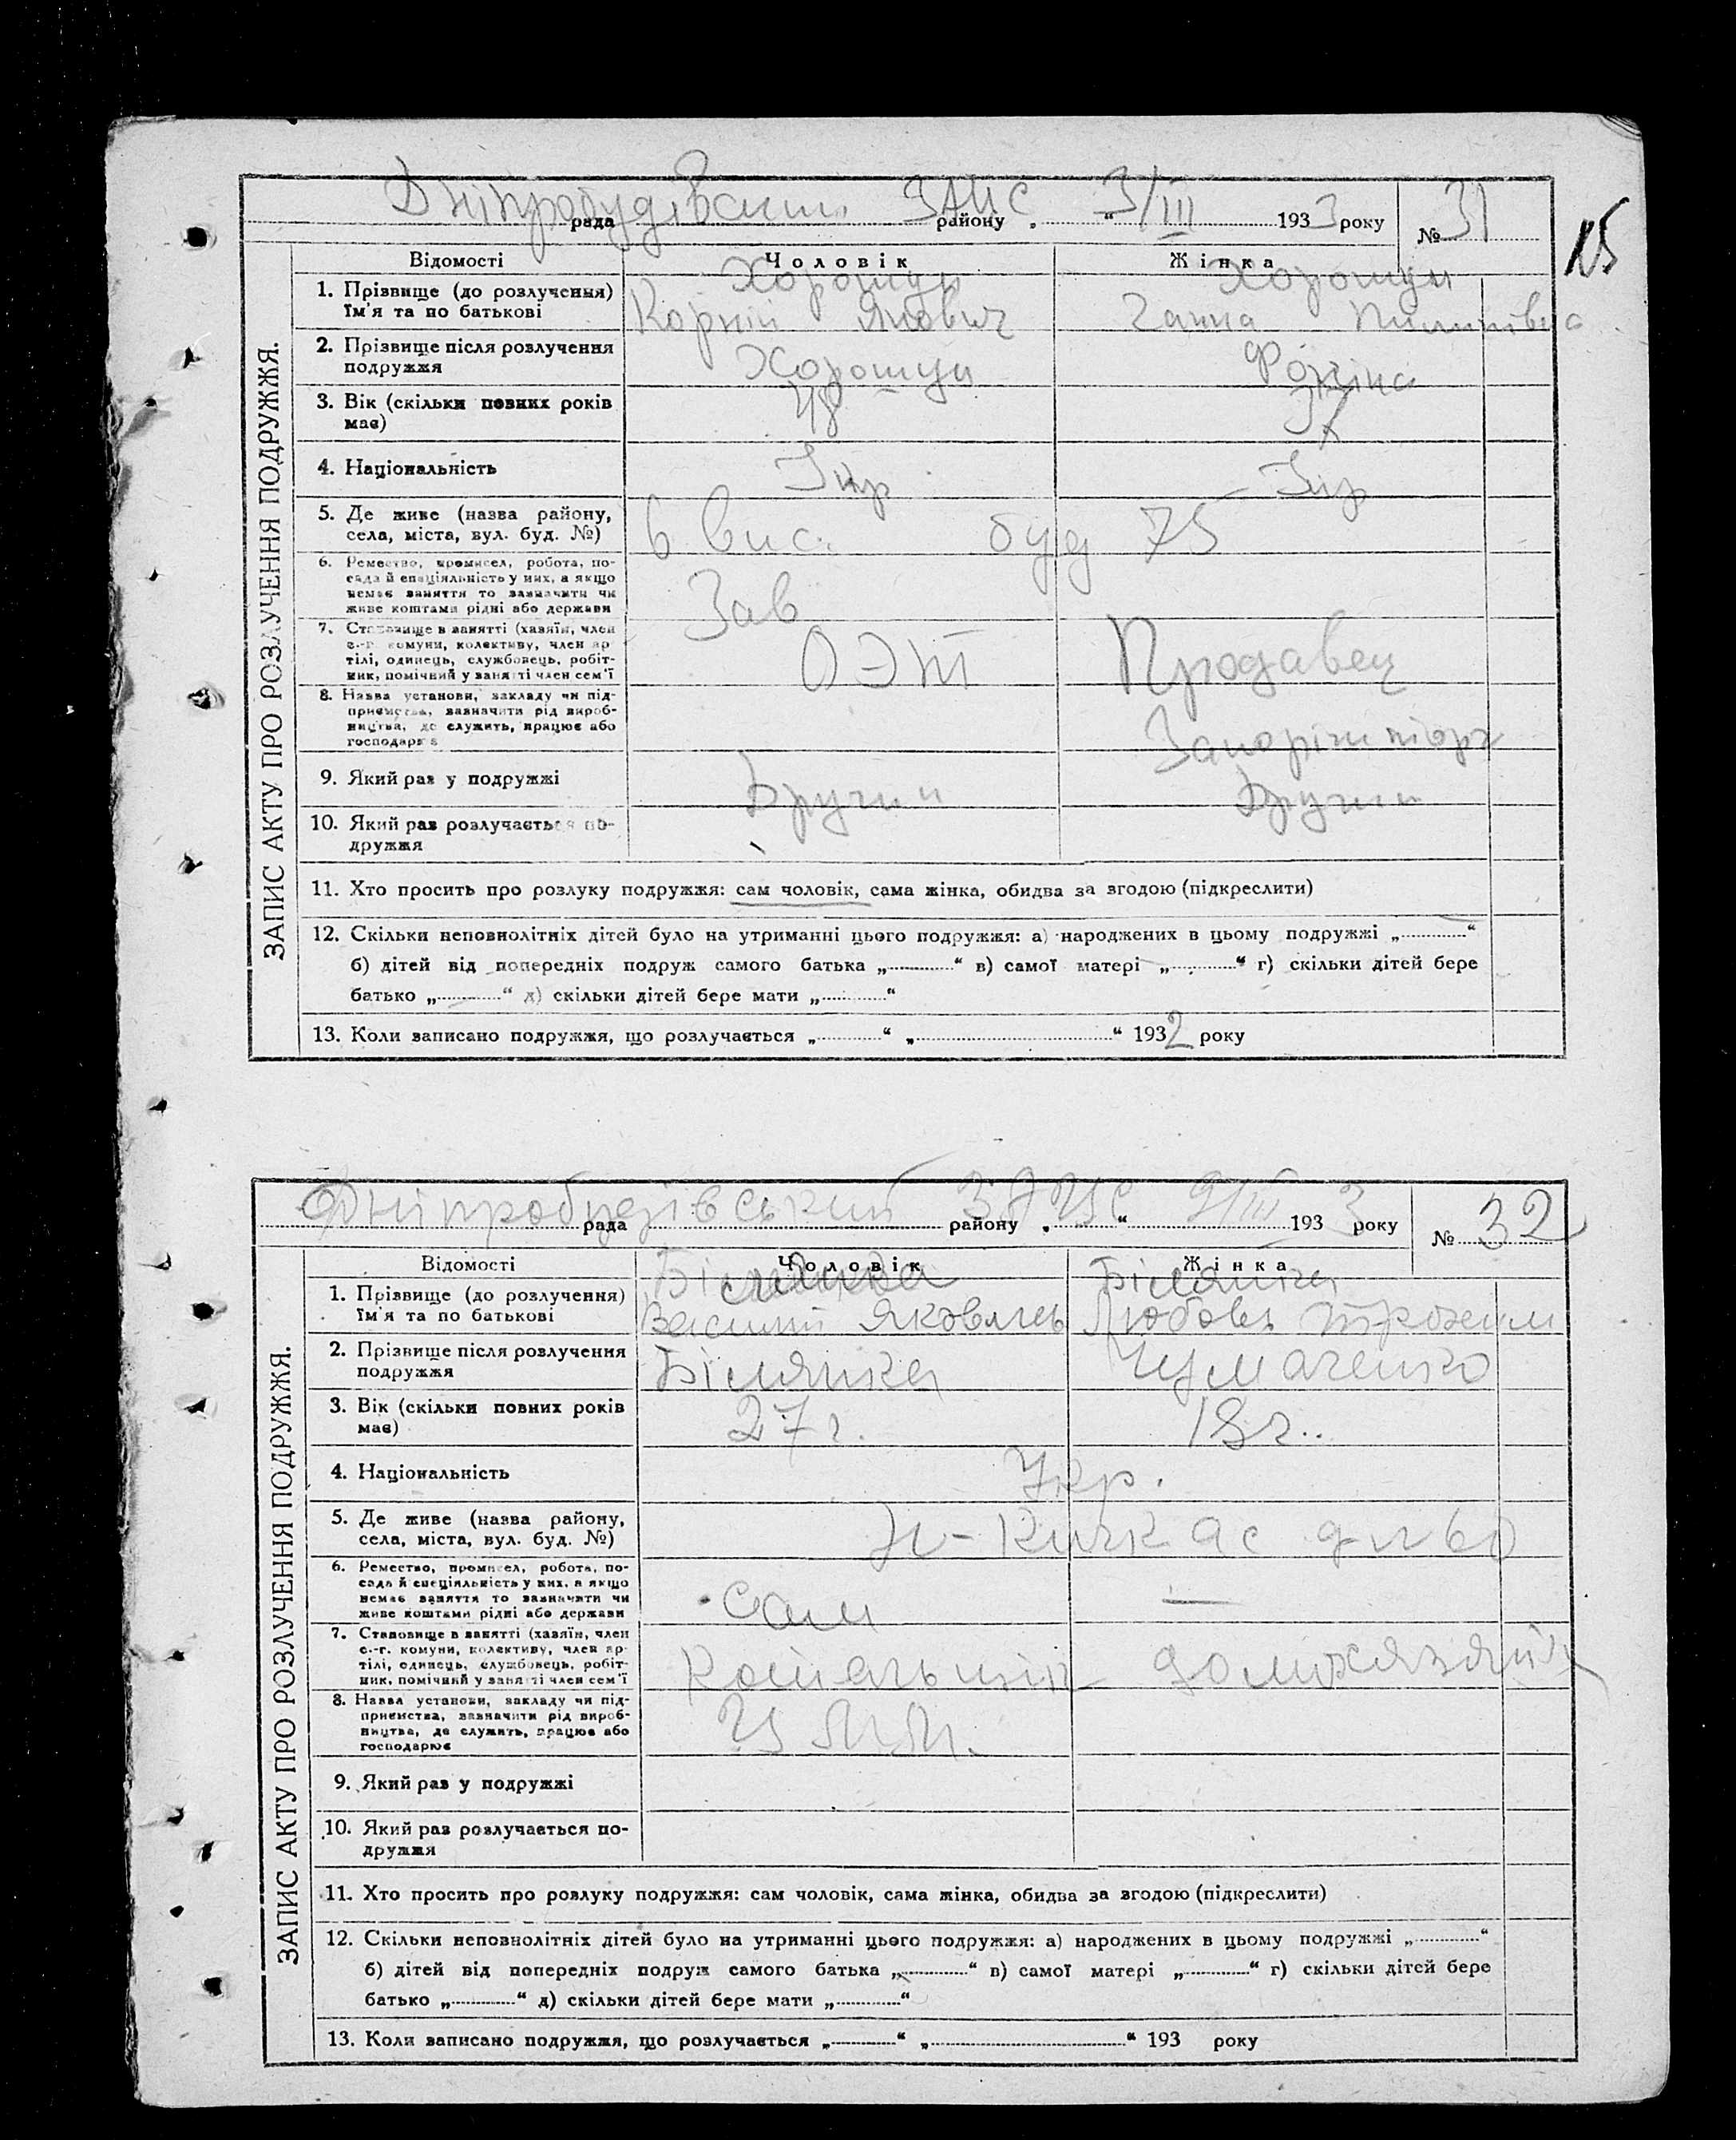 Дніпробудівський ЗАГС 3/III 1933 року № 31
рада району
15
ЗАПИС АКТУ ПРО РОЗЛУЧЕННЯ ПОДРУЖЖЯ.
Відомості Чоловік Жінка
1. Прізвище (до розлучення) Хорошун Хорошун
Ім'я та по батькові Корній Ганна Пилипівна
2. Прізвище після розлучення
подружжя Хорошун
3. Вік (скільки повних років
має) 48 37
4. Національність Укр Укр
5. Де живе (назва району,
села, міста, вул. буд. №) 6 вис. буд 75
6. Ремество, промисел, робота, по-
сада й спеціяльність у них, а якщо
немає заняття то зазначити чи
живе коштами рідні або держави Зав
7. Становище в занятті (хазяїн, член
с.-г. комуни, колективу, член ар-
тілі, одинець, службовець, робіт-
ник, помічний у занятті член сем'ї Продавец
8. Назва установи, закладу чи під-
приємства, зазначити рід вироб-
ництва, де служить, працює або
господарює
9. Який раз у подружжі Другий Другий
10. Який раз розлучається по-
дружжя
11. Хто просить про розлуку подружжя: сам чоловік, сама жінка, обидва за згодою (підкреслити)
12. Скільки неповнолітніх дітей було на утриманні цього подружжя: а) народжених в цьому подружжі „ “
б) дітей від попередніх подруж самого батька „ “ в) самої матері „ “ г) скільки дітей бере
батько „ “ д) скільки дітей бере мати „ “
13. Коли записано подружжя, що розлучається „ “ „ “ 1932 року
Дніпробудівський ЗАГС 9/III 1933 року № 32
рада району
ЗАПИС АКТУ ПРО РОЗЛУЧЕННЯ ПОДРУЖЖЯ.
Відомості Чоловік Жінка
1. Прізвище (до розлучення) Білянка Білянка
Ім'я та по батькові Василий Яковлев Любовь
2. Прізвище після розлучення
подружжя Білянка Чумаченко
3. Вік (скільки повних років
має) 27 г. 18 г.
4. Національність Укр.
5. Де живе (назва району,
села, міста, вул. буд. №) Н-Кичкас д № 60
6. Ремество, промисел, робота, по-
сада й спеціяльність у них, а якщо
немає заняття то зазначити чи
живе коштами рідні або держави Сам —
7. Становище в занятті (хазяїн, член
с.-г. комуни, колективу, член ар-
тілі, одинець, службовець, робіт-
ник, помічний у занятті член сем'ї
8. Назва установи, закладу чи під-
приємства, зазначити рід вироб-
ництва, де служить, працює або
господарює
9. Який раз у подружжі
10. Який раз розлучається по-
дружжя
11. Хто просить про розлуку подружжя: сам чоловік, сама жінка, обидва за згодою (підкреслити)
12. Скільки неповнолітніх дітей було на утриманні цього подружжя: а) народжених в цьому подружжі „ “
б) дітей від попередніх подруж самого батька „ “ в) самої матері „ “ г) скільки дітей бере
батько „ “ д) скільки дітей бере мати „ “
13. Коли записано подружжя, що розлучається „ “ „ “ 193 року